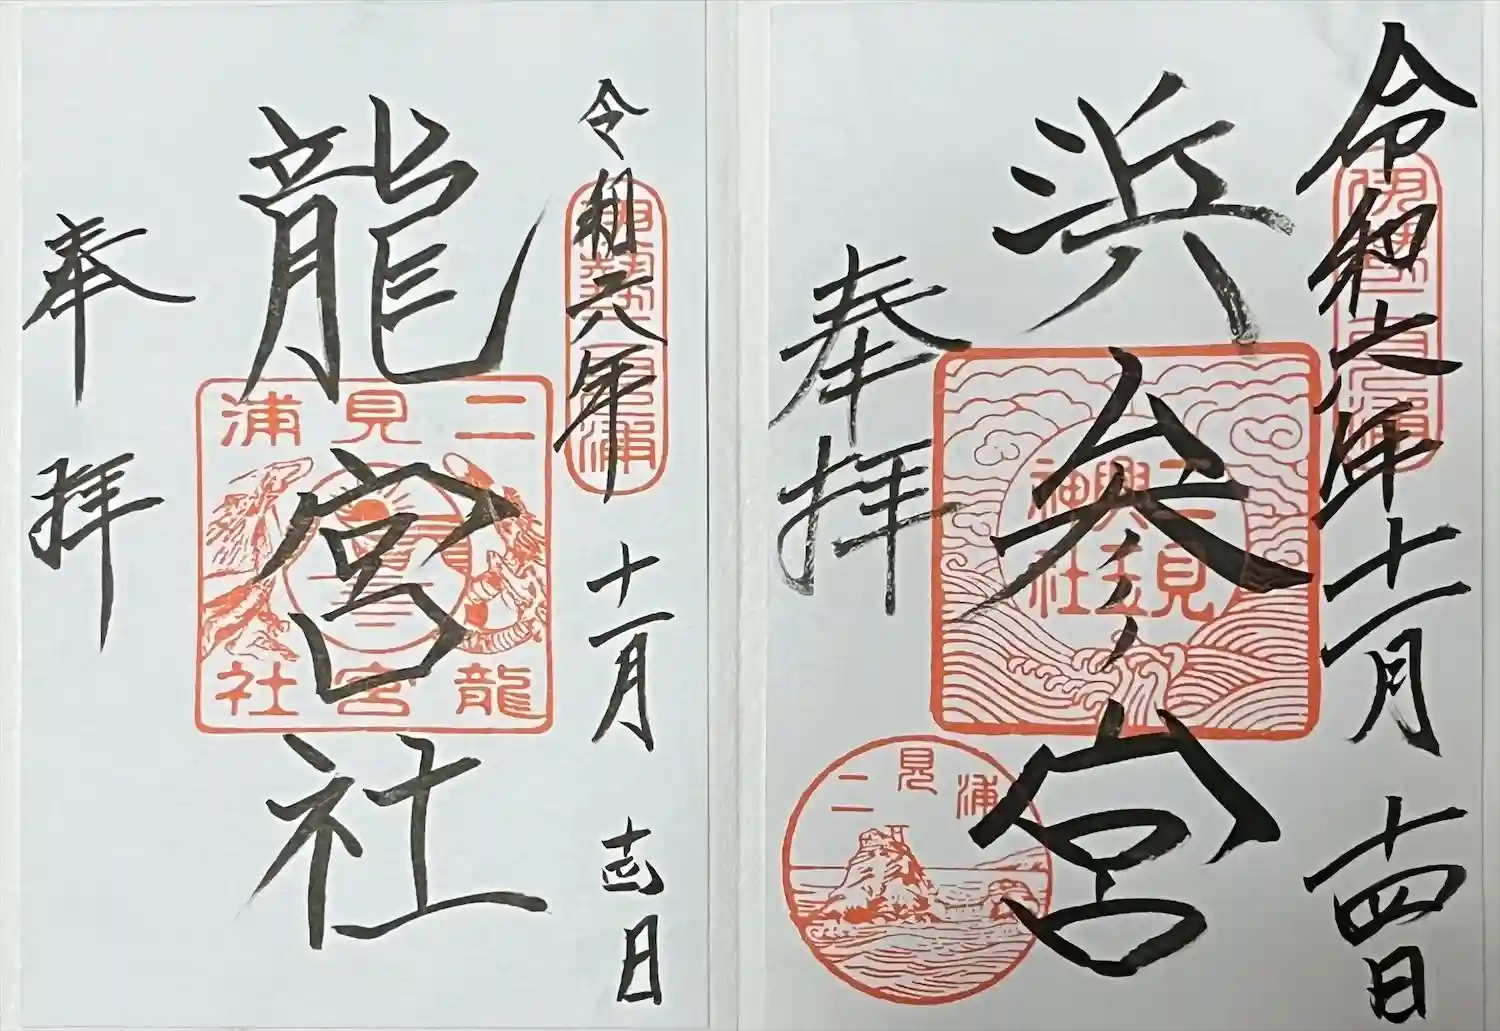 令和六年十一月十四日
伊勢二見浦
龍宮社
二見浦
龍宮社
奉拝
令和六年十一月十四日
伊勢二見浦
浜参宮
二見
興玉
神社
二見浦
奉拝